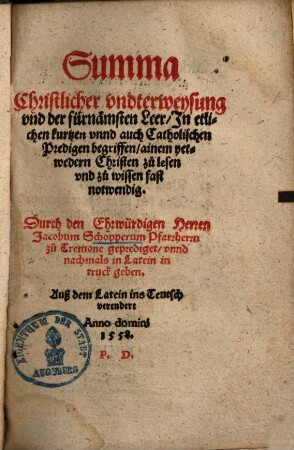 Summa
Christlicher vndterweysung
vnd der fürnämsten Leer/In etli-
chen kurtzen vnnd auch Catholischen
Predigen begriffen/ainem yet-
wedern Christen zů lesen
vnd zů wissen fast
notwendig.
Durch den Ehrwürdigen Herren
Jacobum Schopperum Pfarrherrn
zů Tremone geprediget/vnnd
nachmals in Latein in
truck geben.
Auß dem Latein ins Teutsch
verendert
Anno domini
1558.
P. D.
EIGENTHUM DER STADT
AUGSBURG